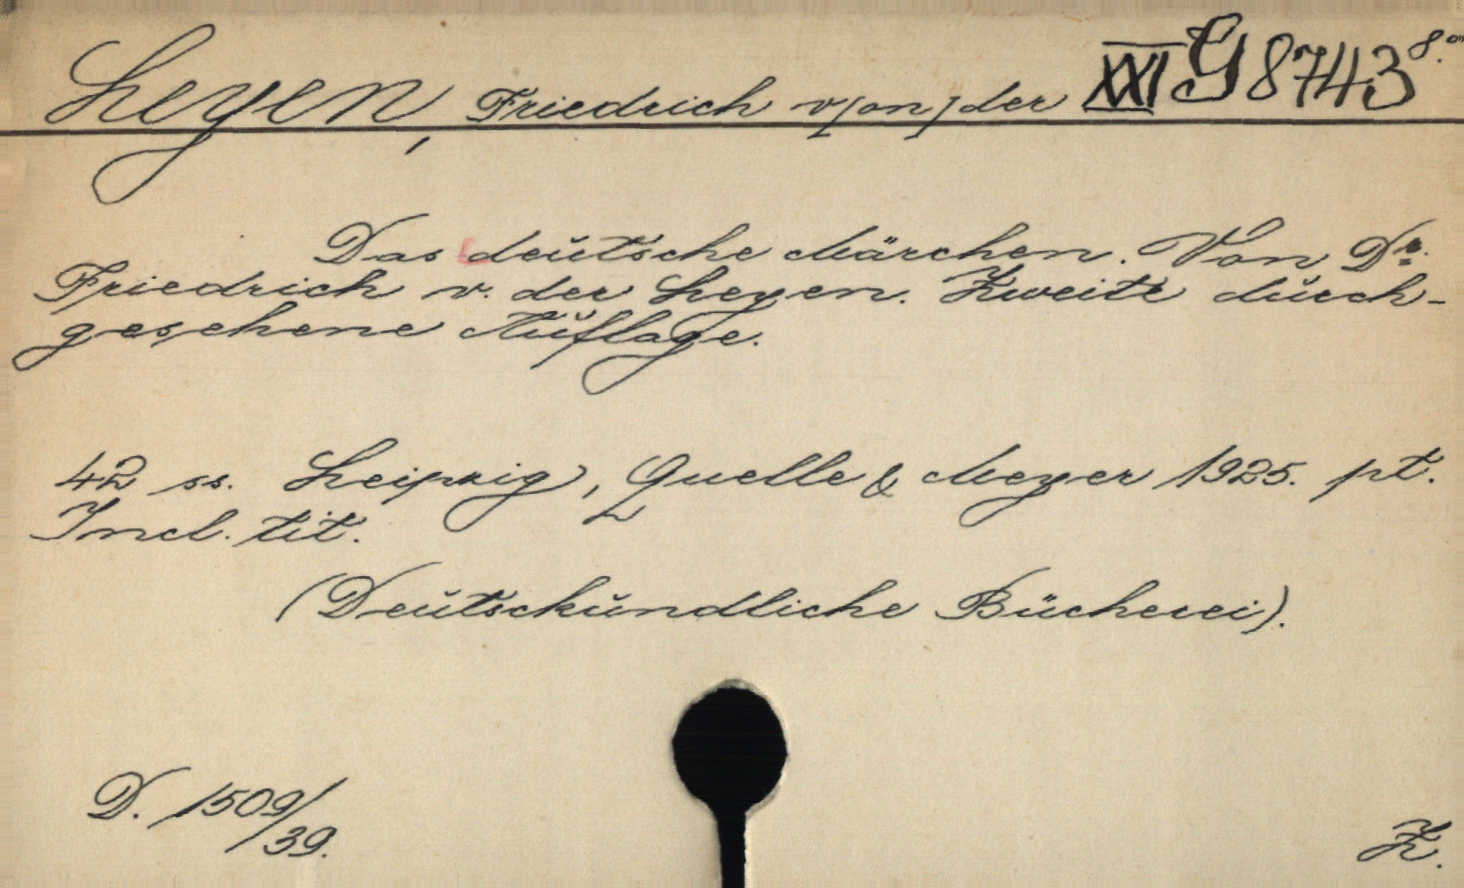 Leyen, Friedrich v[on] der XXI G 8743 8.°
Das deutsche Märchen. Von Dr.
Friedrich v. der Leyen. Zweite durch-
gesehene Auflage.
42 ss. Leipzig, Quelle & Meyer 1925. pt.
Incl. tit.
(Deutschkundliche Bücherei).
D. 1509/39.
Z.